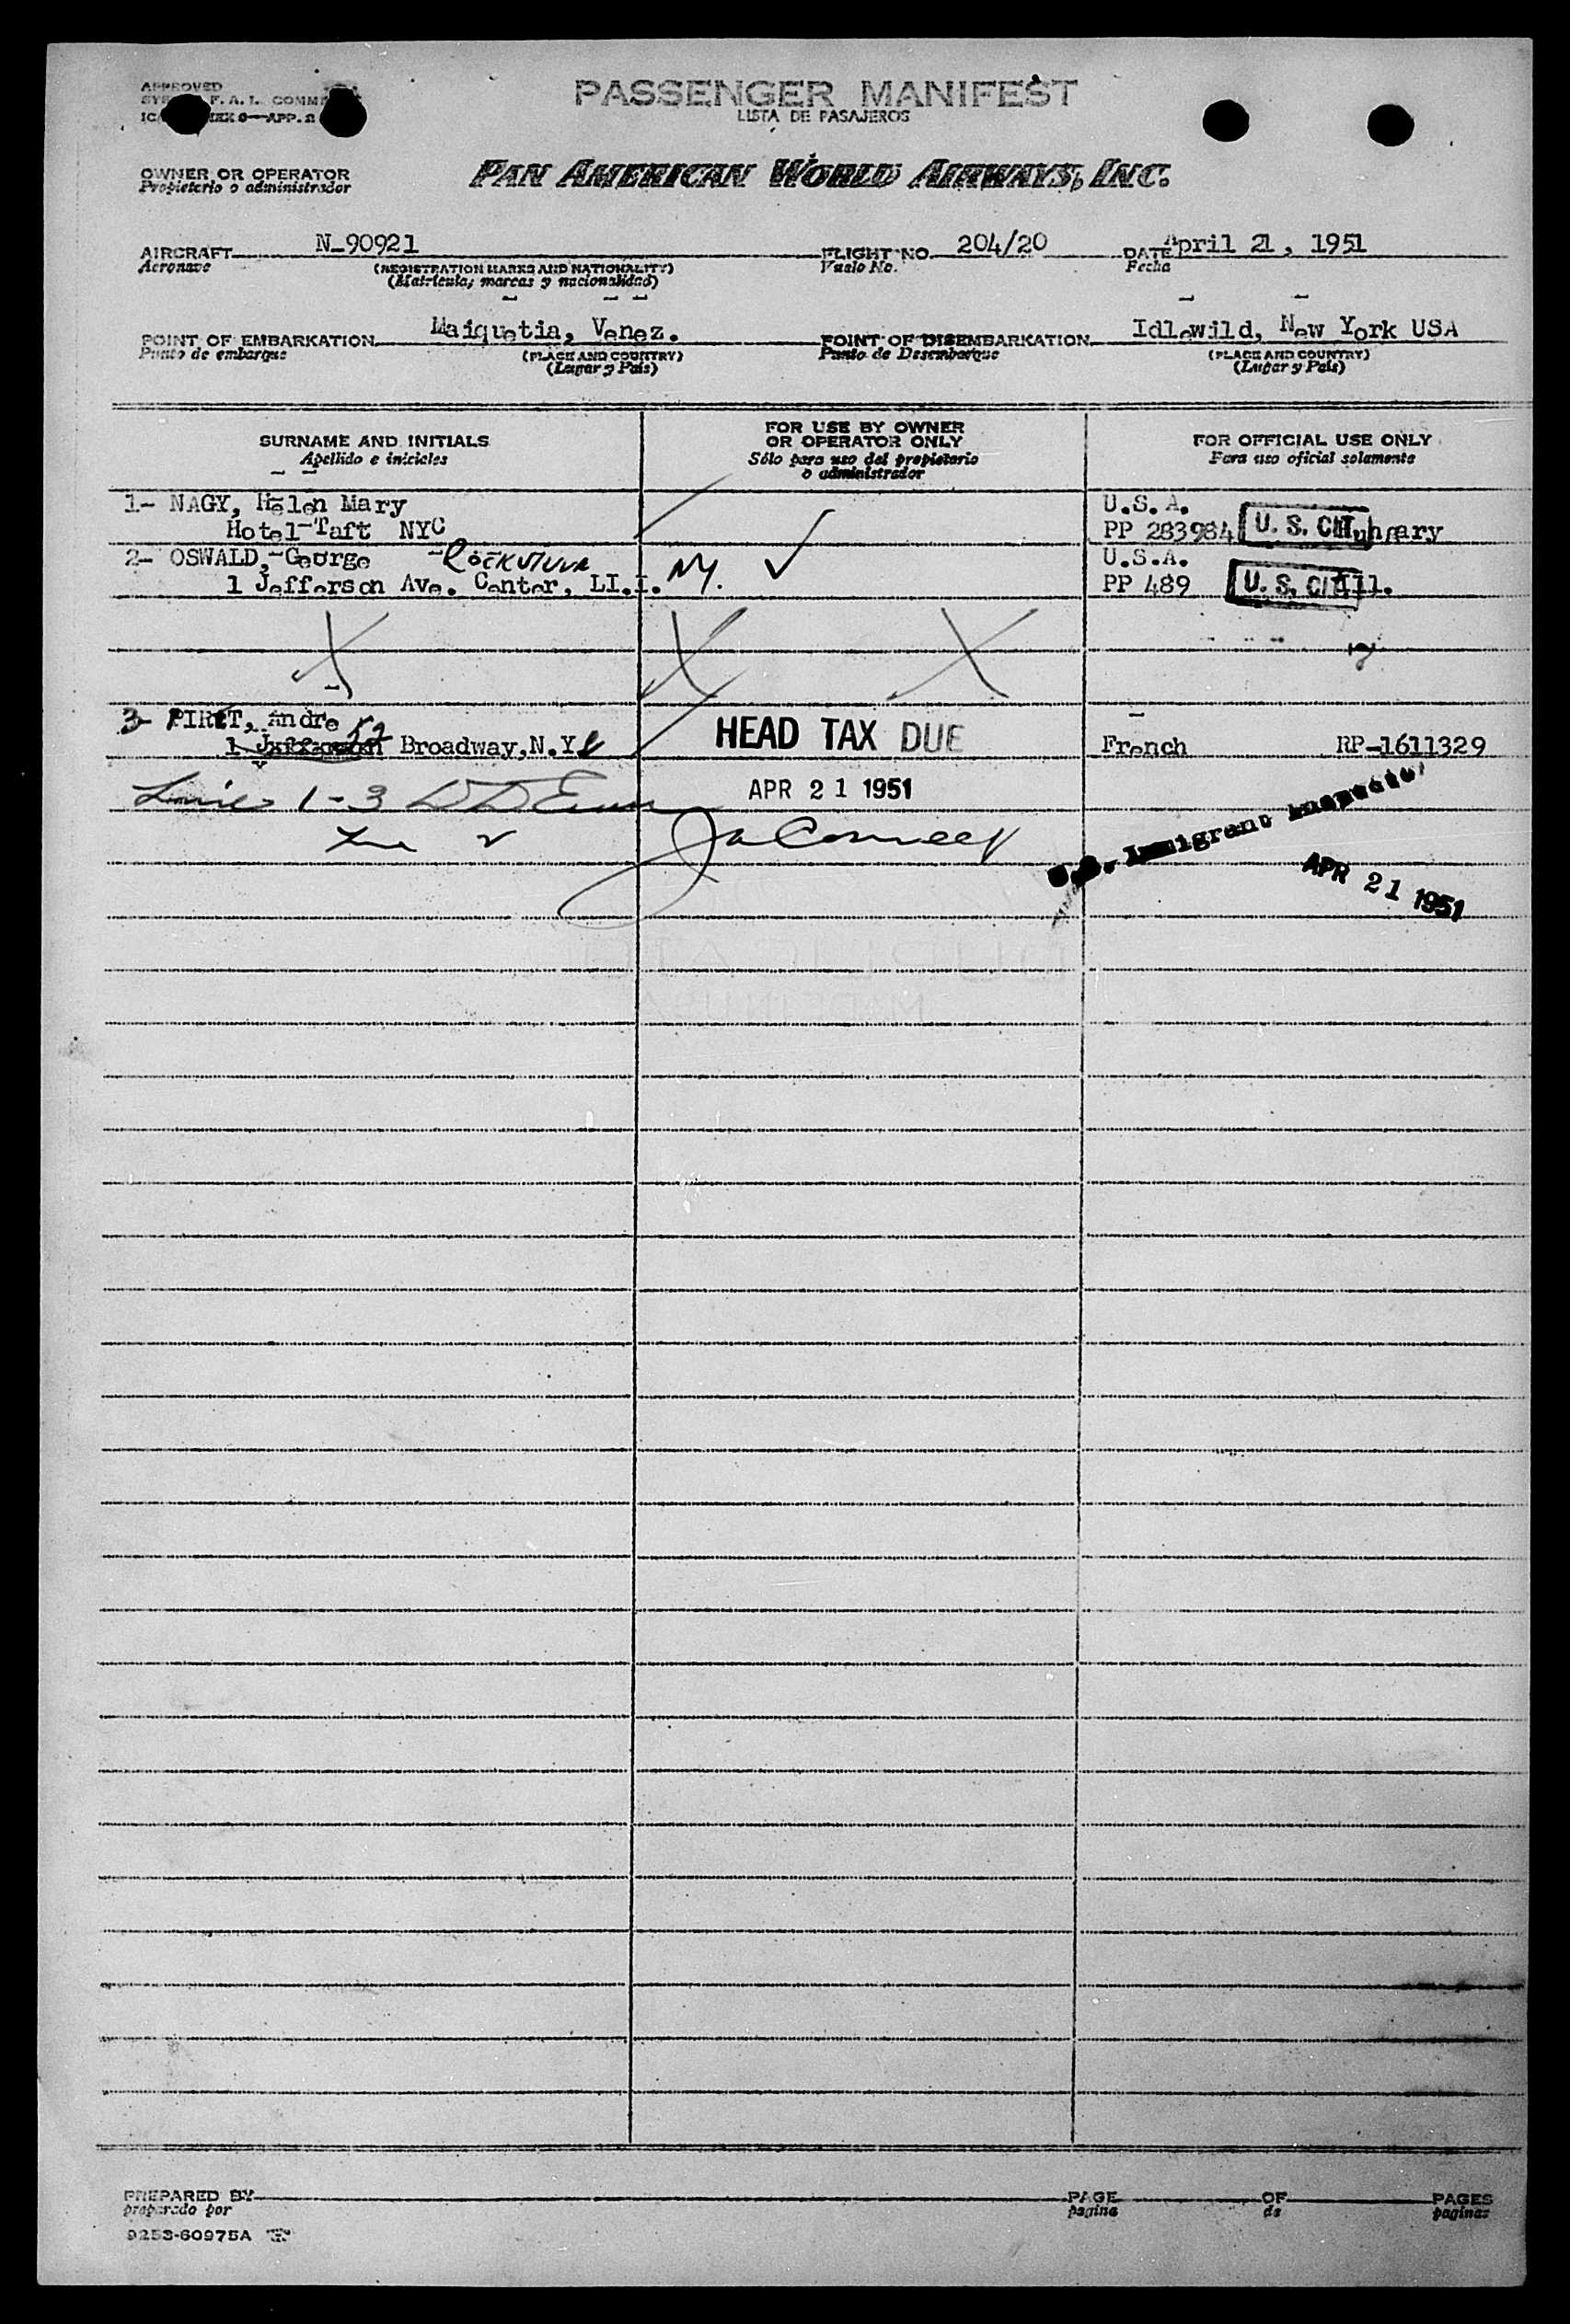 APPROVED
F. A. L. COMM
APP. 2
PASSENGER MANIFEST
LISTA DE PASAJEROS
OWNER OR OPERATOR
Propietario o administrador
PAN AMERICAN WORLD AIRWAYS, INC.
AIRCRAFT N-90921 FLIGHT NO. 204/20 DATE April 21, 1951
Aeronave (REGISTRATION MARKS AND NATIONALITY) Vuelo No. Fecha
(Matricula, marcas y nacionalidad)
POINT OF EMBARKATION Maiquetia, Venez. POINT OF DISEMBARKATION Idlewild, New York USA
Punto de embarque (PLACE AND COUNTRY) Punto de Desembarque (PLACE AND COUNTRY)
(Lugar y País) (Lugar y País)
SURNAME AND INITIALS FOR USE BY OWNER OR OPERATOR ONLY FOR OFFICIAL USE ONLY
Apellido e iniciales Sólo para uso del propietario o administrador Para uso oficial solamente
1- NAGY, Helen Mary U.S.A.
Hotel Taft NYC PP 283984 U. S. CIT Hungary
2- OSWALD, George U.S.A.
1 Jefferson Ave. Center, LI. NY. PP 489 U. S. CIT Ill.
X X X
3- PIRET, Andre 52 HEAD TAX DUE
1 Jefferson Broadway, N.Y. French RP-1611329
Lines 1-3 APR 21 1951
U.S. Immigrant Inspector
APR 21 1951
PREPARED BY PAGE OF PAGES
preparado por pagina de paginas
9253-60975A